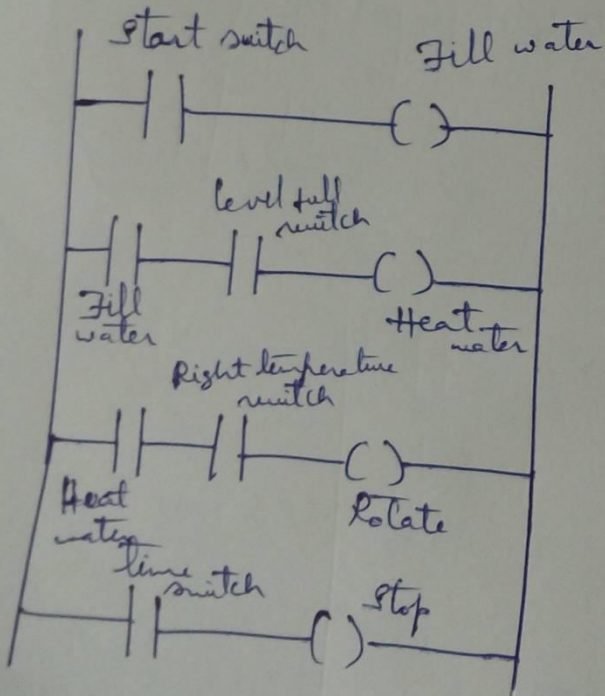 Start switch
Fill water
Level full
switch
Fill
water
Heat
water
Right temperature
switch
Heat
water
Rotate
time
switch
Stop